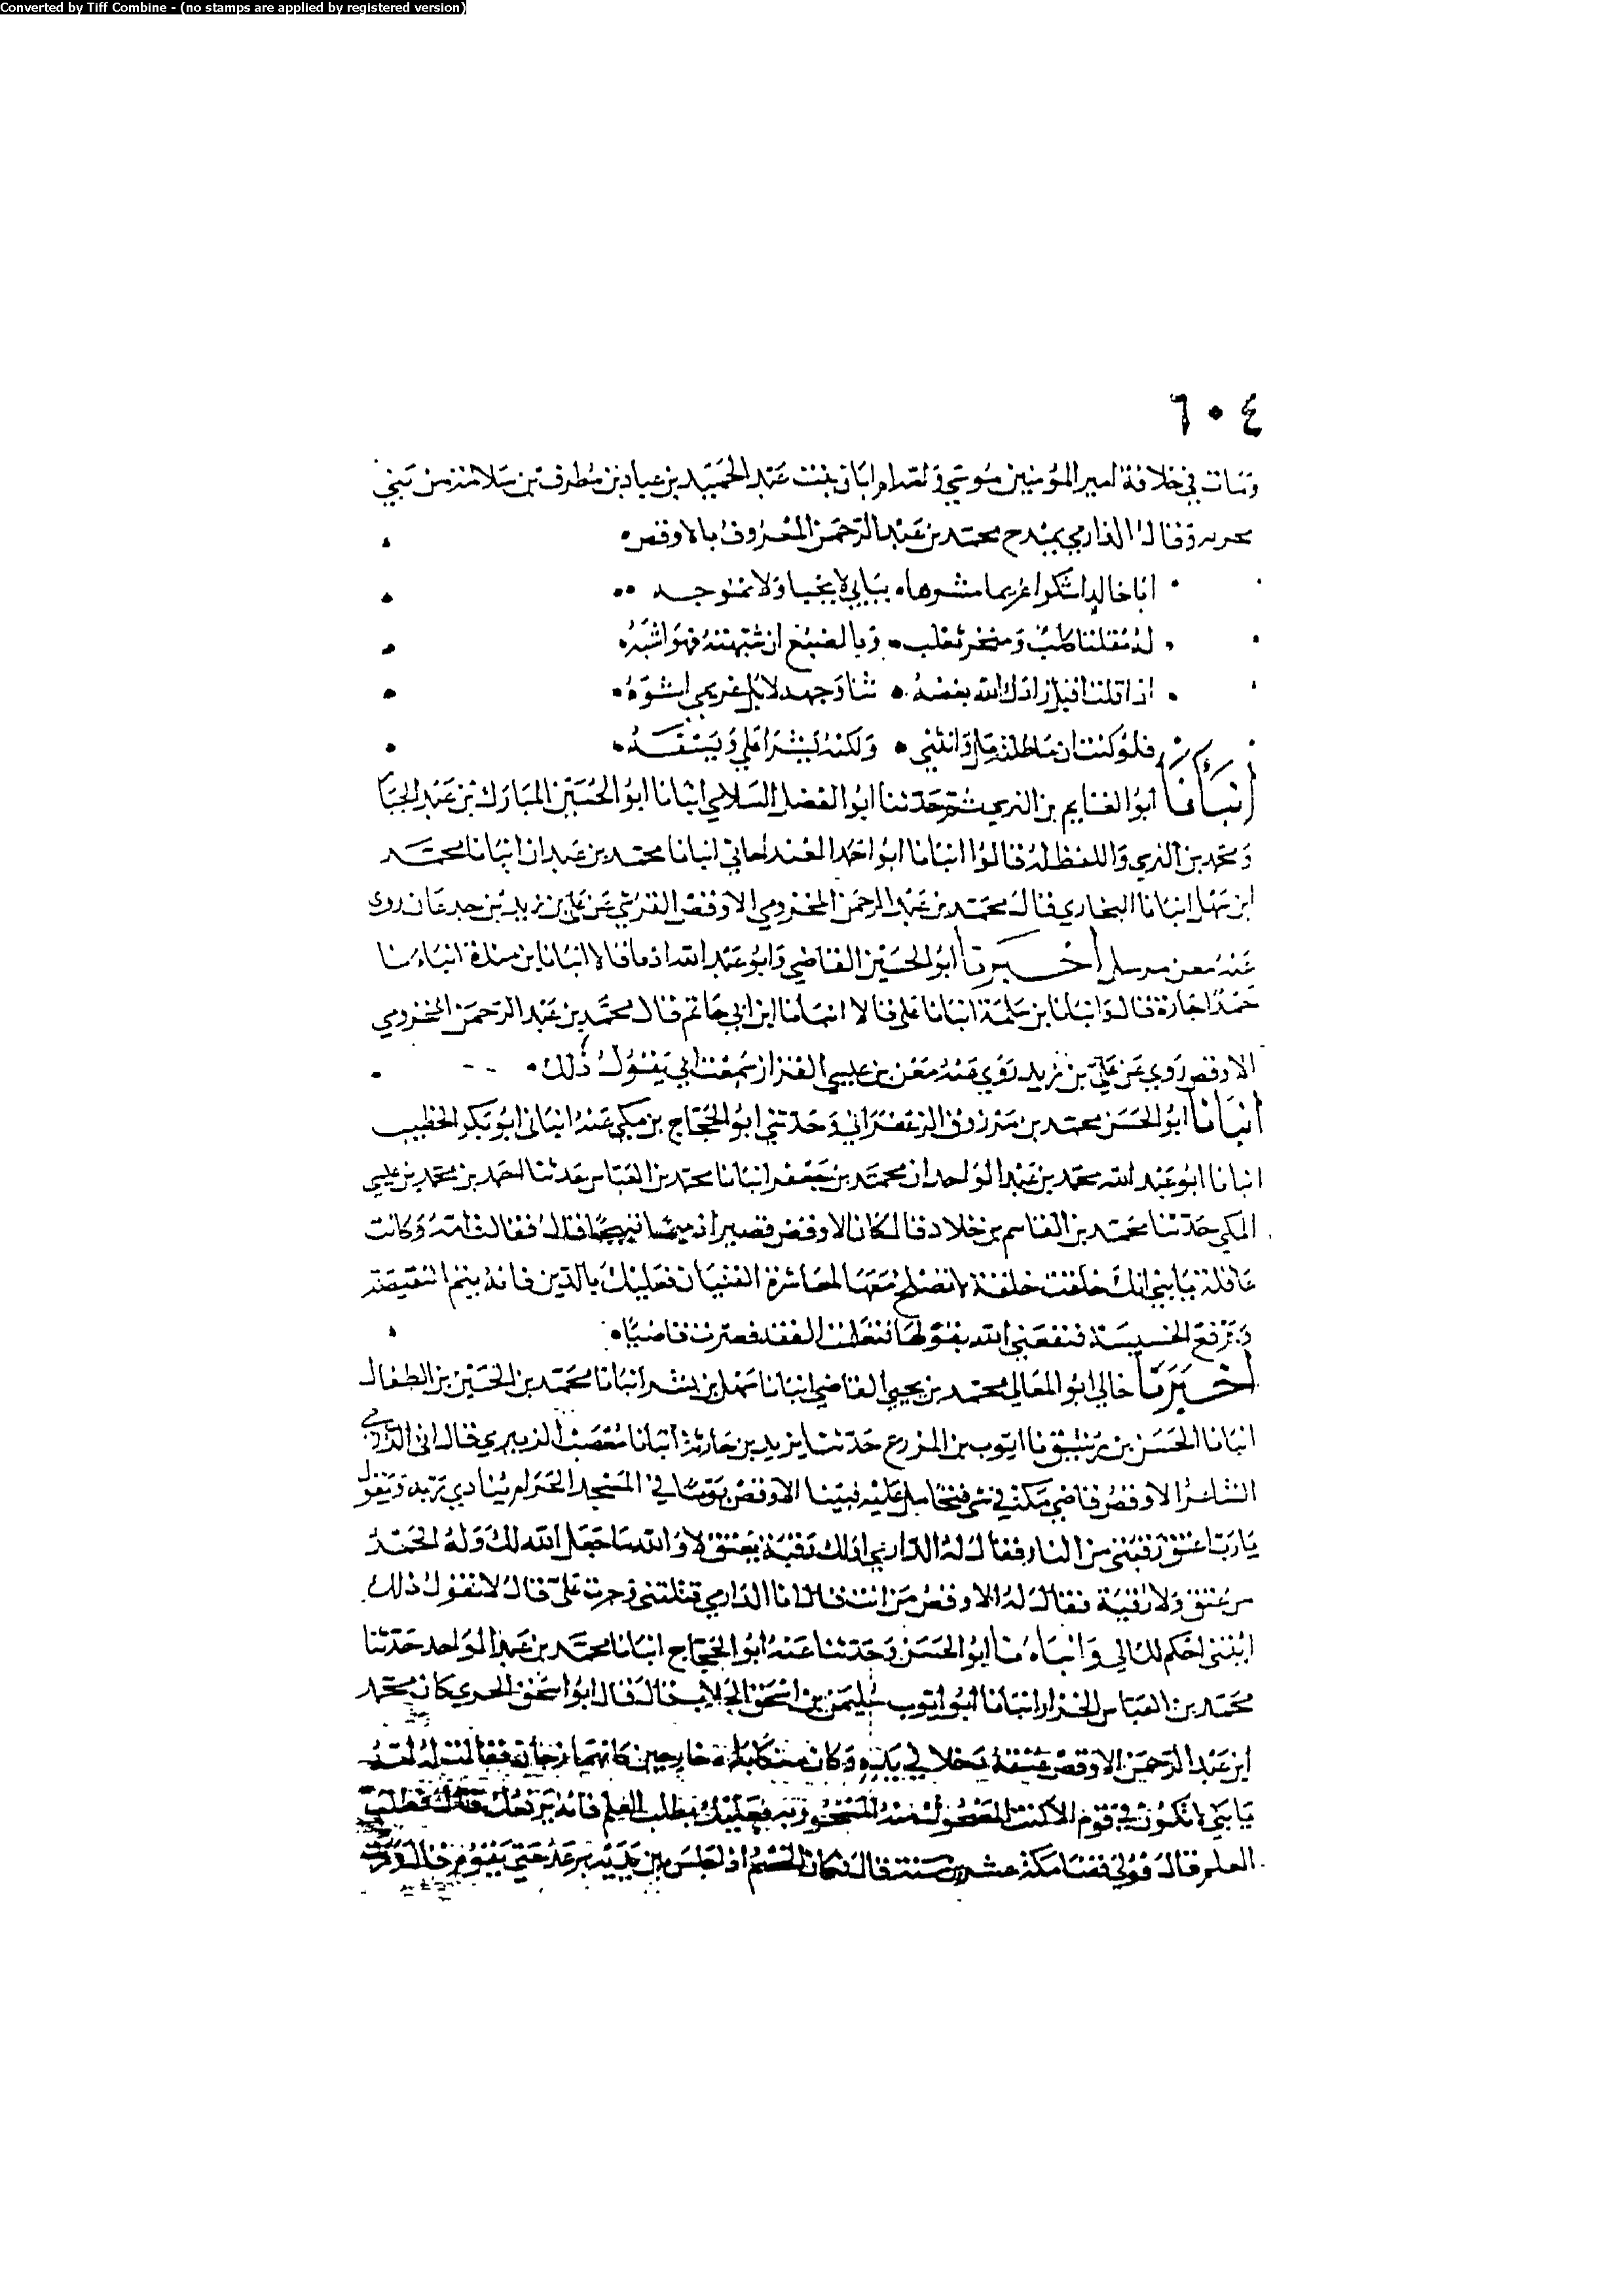 Converted by Tiff Combine - (no stamps are applied by registered version)
٦٠٤
ومات في خلافة امير المؤمنين موسى وامه ام ابان بنت عبد الحميد بن عباد بن مطرف بن سلامة من بني
وقال الدارمي يمدح محمد بن عبد الرحمن المعروف بالاوقص
ابا خالد اشكوا غريما مشوها ببابي لا يحيا ولا
له مقلتا كلب ومنخر ثعلب وبالضبع ان شبهته فهو اشبه
اذا قلت اقبل زادك الله بغضة ثنا وجهه لا بل غريمي اشوه
فلو كنت ان ماطلته مل وانثنى ولكنه
أنبأنا ابو الغنايم بن النرسي ثم حدثنا ابو الفضل السلامي انبانا ابو الحسين المبارك بن عبد الجبار
ومحمد بن النرسي واللفظ له قالوا انبانا ابو احمد الغندجاني انبانا محمد بن عبدان انبانا محمد
ابن سهل انبانا البخاري قال محمد بن عبد الرحمن المخزومي الاوقص القرشي عن علي بن زيد بن جدعان روى
عنه معن مرسل أخبرنا ابو الحسين القاضي وابو عبد الله اذنا قالا انبانا ابن مندة انبانا
حمد اجازة قال وانبانا بن سلمة انبانا علي قالا انبانا ابن ابي حاتم قال محمد بن عبد الرحمن المخزومي
الاوقص روى عن علي بن زيد روى عنه معن بن عيسى القزاز سمعت ابي يقول ذلك
انبانا ابو الحسن محمد بن مرزوق الزعفراني وحدثني ابو الحجاج بن مكي عنه انباني ابو بكر الخطيب
انبانا ابو عبد الله محمد بن عبد الواحد ان محمد بن جعفر انبانا محمد بن العباس حدثنا احمد بن محمد بن عيسى
المكي حدثنا محمد بن القاسم بن خلاد قال كان الاوقص قصيرا دميما قبيحا قال فقالت امه وكانت
عاقلة يا بني انك خلقت خلقة لا تصلح معها لمعاشرة الفتيان فعليك بالدين فانه يتم النقيصة
ويرفع الخسيسة فنفعني الله بقولها فتعلمت الفقه فصرت قاضيا
أخبرنا خالي ابو المعالي محمد بن يحيى القاضي انبانا سهل بن بشر انبانا محمد بن الحسين بن الطفال
انبانا الحسن بن رشيق نا يموت بن المزرع حدثنا يزيد بن انبانا مصعب الزبيري قال اتى الدارمي
الشاعر الاوقص قاضي مكة في شي فتحامل عليه فبينا الاوقص يوما في المسجد الحرام ينادي ربه ويقول
يا رب اعتق رقبتي من النار فقال له الدارمي اولك رقبة تعتق لا والله ما جعل الله لك وله الحمد
من عتق ولا رقبة فقال له الاوقص من انت قال انا الدارمي قتلتني وجرت علي قال لا تقول ذلك
ايتني احكم لك وانبانا ابو الحسن وحدثنا عنه ابو الحجاج انبانا محمد بن عبد الواحد حدثنا
محمد بن العباس الخزاز انبانا ابو ايوب سليمن بن اسحق الجلاب قال قال ابو اسحق الحربي كان محمد
ابن عبد الرحمن الاوقص عنقه داخلا في بدنه وكان منكباه خارجين كانهما زجان فقالت له امه
يا بني لا تكون في قوم الا كنت المضحوك منه المسخور به فعليك بطلب العلم فانه يرفعك قال فطلب
العلم قال فولي قضا مكة عشرين سنة قال فكان الخصم اذا جلس بين يديه يرعد حتى يقوم قال ومرت